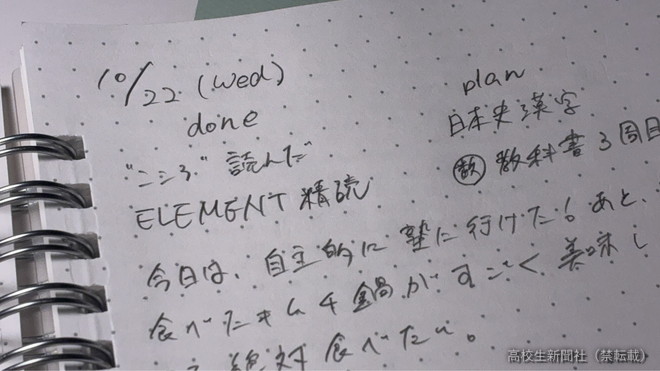 10/22 (wed)
done
"こころ" 読んだ
ELEMENT 精読
plan
日本史漢字
数 教科書3周目
今日は、自主的に塾に行けた!あと、
食べたキムチ鍋がすごく美味し
絶対食べたい。
高校生新聞社(禁転載)